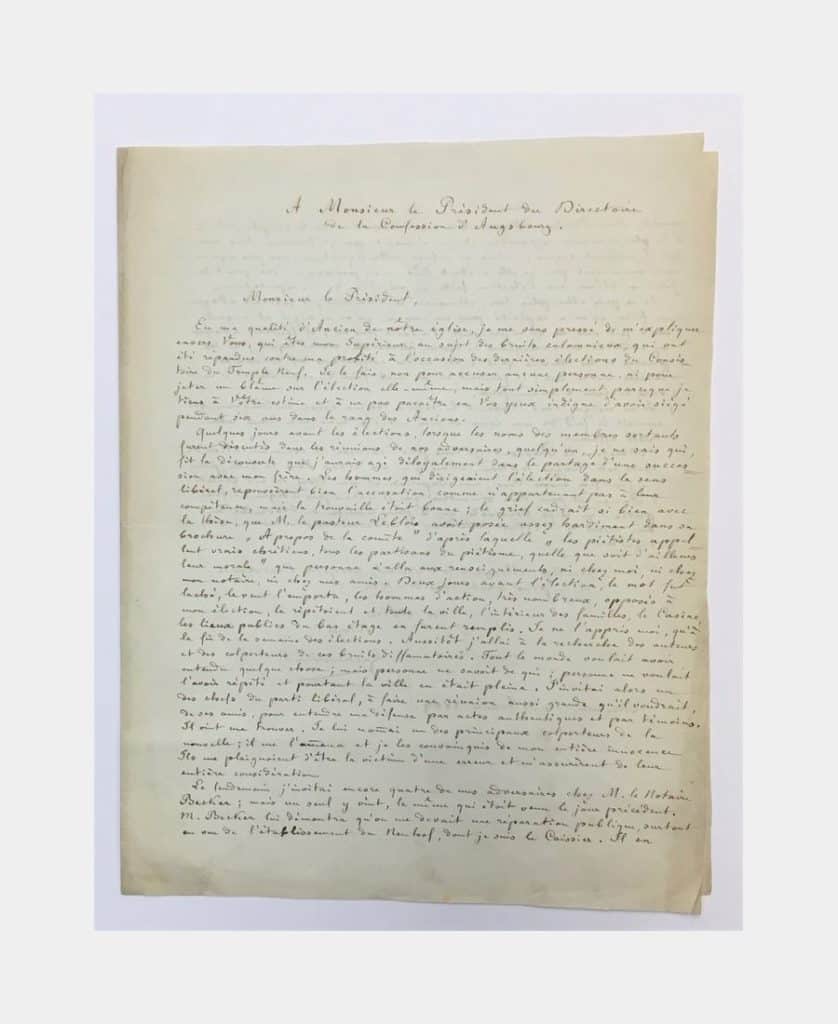 A Monsieur le Président du Directoire
de la Confession d'Augsbourg.
Monsieur le Président,
En ma qualité d'Ancien de nôtre église, je me sens pressé de m'expliquer
envers Vous, qui êtes mon Supérieur, au sujet des bruits calomnieux, qui ont
été répandus contre ma probité à l'occasion des dernières élections du Consis-
toire du Temple Neuf. Je le fais, non pour accuser aucune personne, ni pour
jeter un blâme sur l'élection elle même, mais tout simplement parceque je
tiens à Vôtre estime et à ne pas paraître en Vos yeux indigne d'avoir siégé
pendant six ans dans le rang des Anciens.
Quelques jours avant les élections, lorsque les noms des membres sortants
furent discutés dans les réunions de nos adversaires, quelqu'un, je ne sais qui,
fit la découverte que j'aurais agi déloyalement dans le partage d'une succes-
sion avec mon frère. Les hommes, qui dirigeaient l'élection dans le sens
libéral, repoussèrent bien l'accusation comme n'appartenant pas à leur
compétence, mais la trouvaille était bonne; le grief cadrait si bien avec
la thèse, que M. le pasteur Leblois avait posée assez hardiment dans sa
brochure „A propos de la comète" d'après laquelle „les piétistes appel-
lent vrais chrétiens, tous les partisans du piétisme, quelle que soit d'ailleurs
leur morale" que personne n'alla aux renseignements, ni chez moi, ni chez
mon notaire, ni chez mes amis. Deux jours avant l'élection, le mot fut
lâché, le vent l'emporta, les hommes d'action, très nombreux, opposés à
mon élection, le répétoient et toute la ville, l'intérieur des familles, le Casino,
les lieux publics du bas étage en furent remplis. Je ne l'appris moi, qu'à
la fin de la semaine des élections. Aussitôt j'allai à la recherche des auteurs
et des colporteurs de ces bruits diffamatoires. Tout le monde voulait avoir
entendu quelque chose; mais personne ne savait de qui; personne ne voulait
l'avoir répété et pourtant la ville en était pleine. J'invitai alors un
des chefs du parti libéral, à faire une réunion aussi grande qu'il voudrait,
de ses amis, pour entendre ma défense par actes authentiques et par témoins.
Il vint me trouver. Je lui nommai un des principaux colporteurs de la
nouvelle; il me l'amena et je les convainquis de mon entière innocence
Ils me plaignoient d'être la victime d'une erreur et m'assurèrent de leur
entière considération
Le lendemain j'invitai encore quatre de mes adversaires chez M. le Notaire
Becker; mais un seul y vint, le même qui était venu le jour précédent.
M. Becker lui démontra qu'on me devait une réparation publique, surtout
en vue de l'établissement du Neuhof, dont je suis le Caissier. Il en